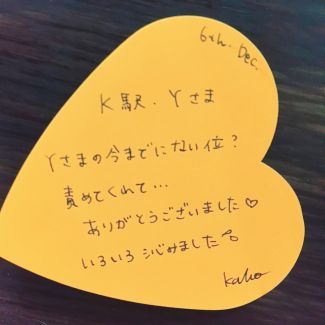 6th. Dec.
K駅. Yさま
Yさまの今までにない位?
責めてくれて...
ありがとうございました♡
いろいろ沁みました
kaho